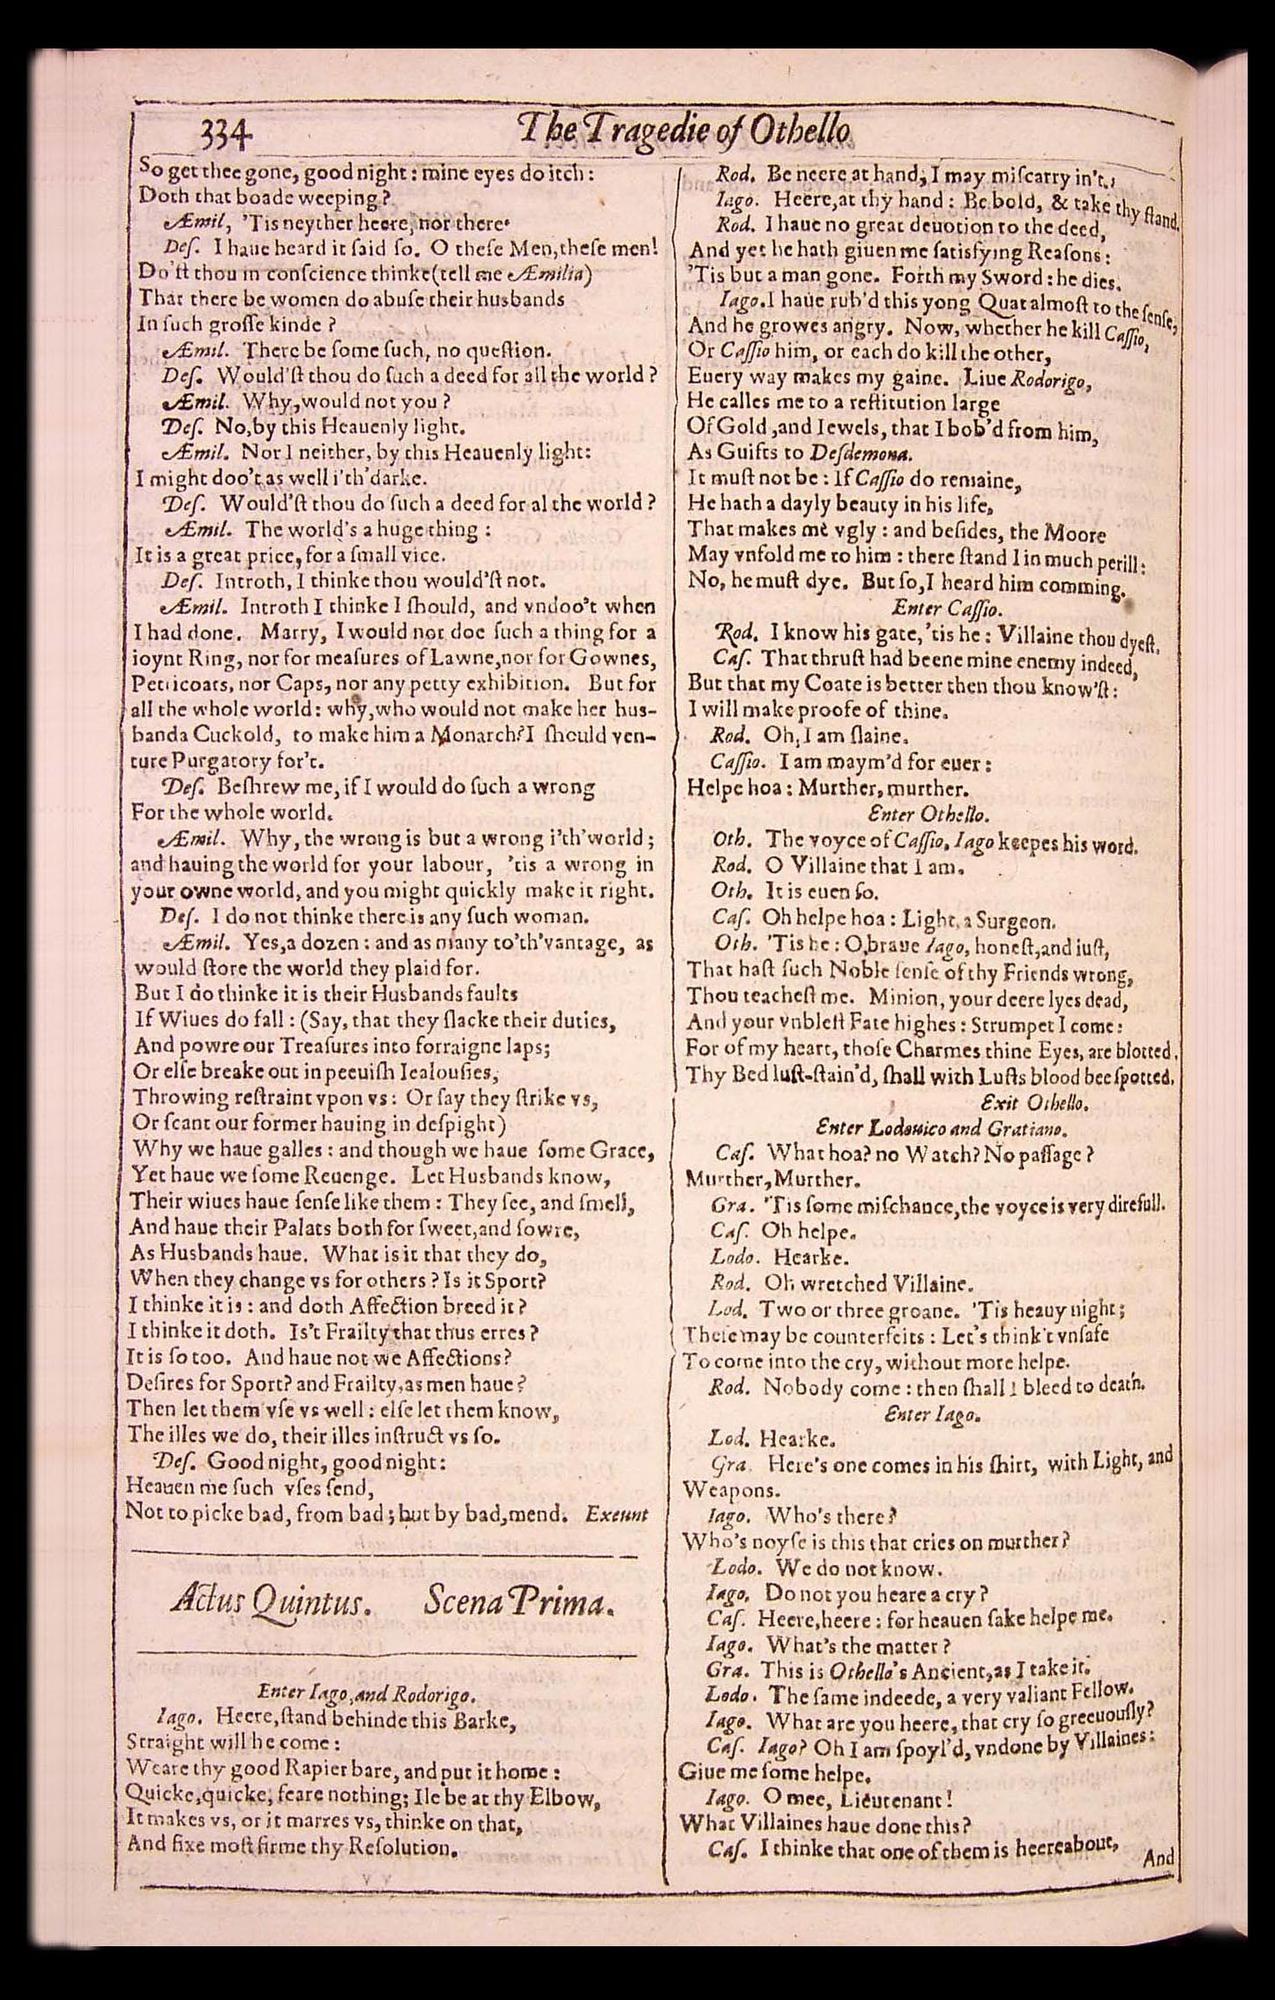 334
The Tragedie of Othello
So get thee gone, good night: mine eyes do itch:
Doth that boade weeping?
Æmil, 'Tis neyther heere, nor there.
Deſ. I haue heard it ſaid ſo. O theſe Men, theſe men!
Do'ſt thou in conſcience thinke (tell me Æmilia)
That there be women do abuſe their husbands
In ſuch groſſe kinde?
Æmil. There be ſome ſuch, no queſtion.
Deſ. Would'ſt thou do ſuch a deed for all the world?
Æmil. Why, would not you?
Deſ. No, by this Heauenly light.
Æmil. Nor I neither, by this Heauenly light:
I might doo't as well i'th'darke.
Deſ. Would'ſt thou do ſuch a deed for al the world?
Æmil. The world's a huge thing:
It is a great price, for a ſmall vice.
Deſ. Introth, I thinke thou would'ſt not.
Æmil. Introth I thinke I ſhould, and vndoo't when
I had done. Marry, I would not doe ſuch a thing for a
ioynt Ring, nor for meaſures of Lawne, nor for Gownes,
Petticoats, nor Caps, nor any petty exhibition. But for
all the whole world: why, who would not make her hus-
banda Cuckold, to make him a Monarch? I ſhould ven-
ture Purgatory for't.
Deſ. Beſhrew me, if I would do ſuch a wrong
For the whole world.
Æmil. Why, the wrong is but a wrong i'th'world;
and hauing the world for your labour, 'tis a wrong in
your owne world, and you might quickly make it right.
Deſ. I do not thinke there is any ſuch woman.
Æmil. Yes, a dozen: and as many to'th'vantage, as
would ſtore the world they plaid for.
But I do thinke it is their Husbands faults
If Wiues do fall: (Say, that they ſlacke their duties,
And powre our Treaſures into forraigne laps;
Or elſe breake out in peeuiſh Iealouſies,
Throwing reſtraint vpon vs: Or ſay they ſtrike vs,
Or ſcant our former hauing in deſpight)
Why we haue galles: and though we haue ſome Grace,
Yet haue we ſome Reuenge. Let Husbands know,
Their wiues haue ſenſe like them: They ſee, and ſmell,
And haue their Palats both for ſweet, and ſowre,
As Husbands haue. What is it that they do,
When they change vs for others? Is it Sport?
I thinke it is: and doth Affection breed it?
I thinke it doth. Is't Frailty that thus erres?
It is ſo too. And haue not we Affections?
Deſires for Sport? and Frailty, as men haue?
Then let them vſe vs well: elſe let them know,
The illes we do, their illes inſtruct vs ſo.
Deſ. Good night, good night:
Heauen me ſuch vſes ſend,
Not to picke bad, from bad; but by bad, mend. Exeunt
Actus Quintus. Scena Prima.
Enter Iago, and Rodorigo.
Iago. Heere, ſtand behinde this Barke,
Straight will he come:
Weare thy good Rapier bare, and put it home:
Quicke, quicke, feare nothing; Ile be at thy Elbow,
It makes vs, or it marres vs, thinke on that,
And fixe moſt firme thy Reſolution.
Rod. Be neere at hand, I may miſcarry in't.
Iago. Heere, at thy hand: Be bold, & take thy ſtand.
Rod. I haue no great deuotion to the deed,
And yet he hath giuen me ſatisfying Reaſons:
'Tis but a man gone. Forth my Sword: he dies.
Iago. I haue rub'd this yong Quat almoſt to the ſenſe,
And he growes angry. Now, whether he kill Caſſio,
Or Caſſio him, or each do kill the other,
Euery way makes my gaine. Liue Rodorigo,
He calles me to a reſtitution large
Of Gold, and Iewels, that I bob'd from him,
As Guifts to Deſdemona.
It muſt not be: If Caſſio do remaine,
He hath a dayly beauty in his life,
That makes me vgly: and beſides, the Moore
May vnfold me to him: there ſtand I in much perill:
No, he muſt dye. But ſo, I heard him comming.
Enter Caſſio.
Rod. I know his gate, 'tis he: Villaine thou dyeſt.
Caſ. That thruſt had beene mine enemy indeed,
But that my Coate is better then thou know'ſt:
I will make proofe of thine.
Rod. Oh, I am ſlaine.
Caſſio. I am maym'd for euer:
Helpe hoa: Murther, murther.
Enter Othello.
Oth. The voyce of Caſſio, Iago keepes his word.
Rod. O Villaine that I am.
Oth. It is euen ſo.
Caſ. Oh helpe hoa: Light, a Surgeon.
Oth. 'Tis he: O braue Iago, honeſt, and iuſt,
That haſt ſuch Noble ſenſe of thy Friends wrong,
Thou teacheſt me. Minion, your deere lyes dead,
And your vnbleſt Fate highes: Strumpet I come:
For of my heart, thoſe Charmes thine Eyes, are blotted.
Thy Bed luſt-ſtain'd, ſhall with Luſts blood bee ſpotted.
Exit Othello.
Enter Lodouico and Gratiano.
Caſ. What hoa? no Watch? No paſſage?
Murther, Murther.
Gra. 'Tis ſome miſchance, the voyce is very direfull.
Caſ. Oh helpe.
Lodo. Hearke.
Rod. Oh wretched Villaine.
Lod. Two or three groane. 'Tis heauy night;
Theſe may be counterfeits: Let's think't vnſafe
To come into the cry, without more helpe.
Rod. Nobody come: then ſhall I bleed to death.
Enter Iago.
Lod. Hearke.
Gra. Here's one comes in his ſhirt, with Light, and
Weapons.
Iago. Who's there?
Who's noyſe is this that cries on murther?
Lodo. We do not know.
Iago. Do not you heare a cry?
Caſ. Heere, heere: for heauen ſake helpe me.
Iago. What's the matter?
Gra. This is Othello's Ancient, as I take it.
Lodo. The ſame indeede, a very valiant Fellow.
Iago. What are you heere, that cry ſo greeuouſly?
Caſ. Iago? Oh I am ſpoyl'd, vndone by Villaines:
Giue me ſome helpe.
Iago. O mee, Lieutenant!
What Villaines haue done this?
Caſ. I thinke that one of them is heereabout,
And